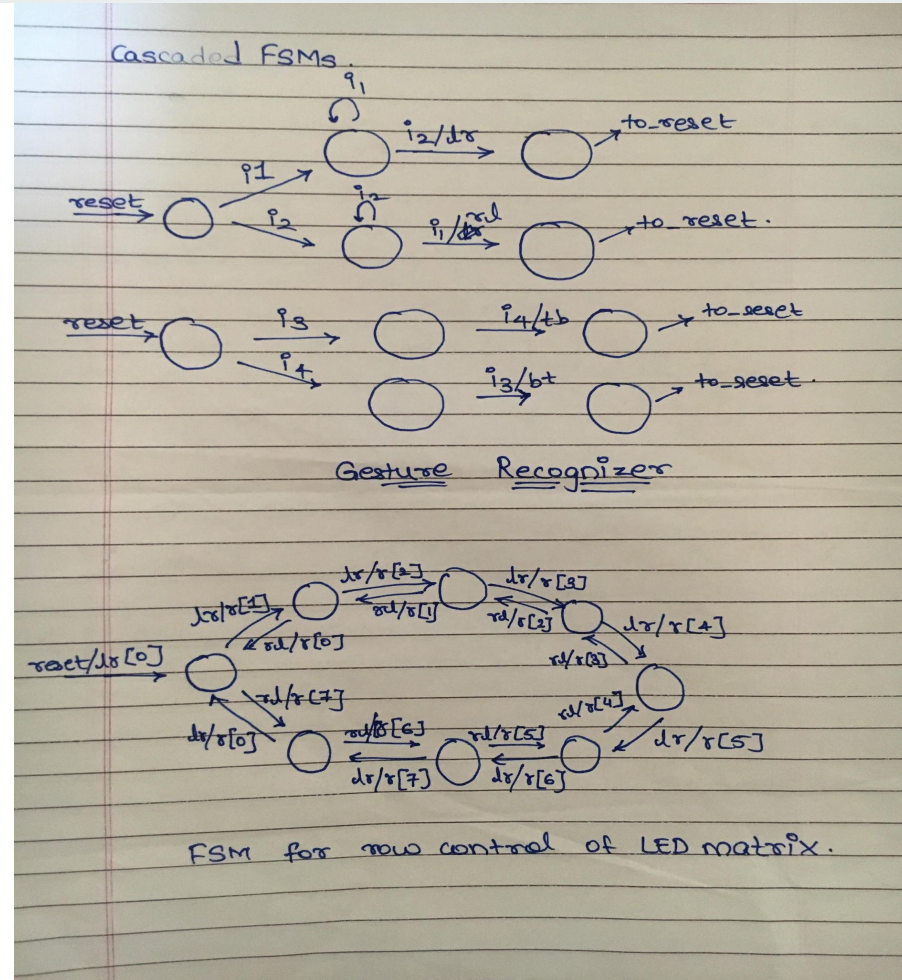 Cascaded FSMs.
i1
i2/lr
to_reset
i1
reset
i2
i2
i1/rl
to_reset.
reset
i3
i4/tb
to_reset
i4
i3/bt
to_reset.
Gesture Recognizer
lr/r[2]
lr/r[3]
lr/r[1]
rl/r[1]
rl/r[2]
lr/r[4]
rl/r[0]
reset/lr[0]
rl/r[3]
rl/r[7]
rl/r[4]
lr/r[0]
rl/r[6]
rl/r[5]
lr/r[5]
lr/r[7]
lr/r[6]
FSM for row control of LED matrix.